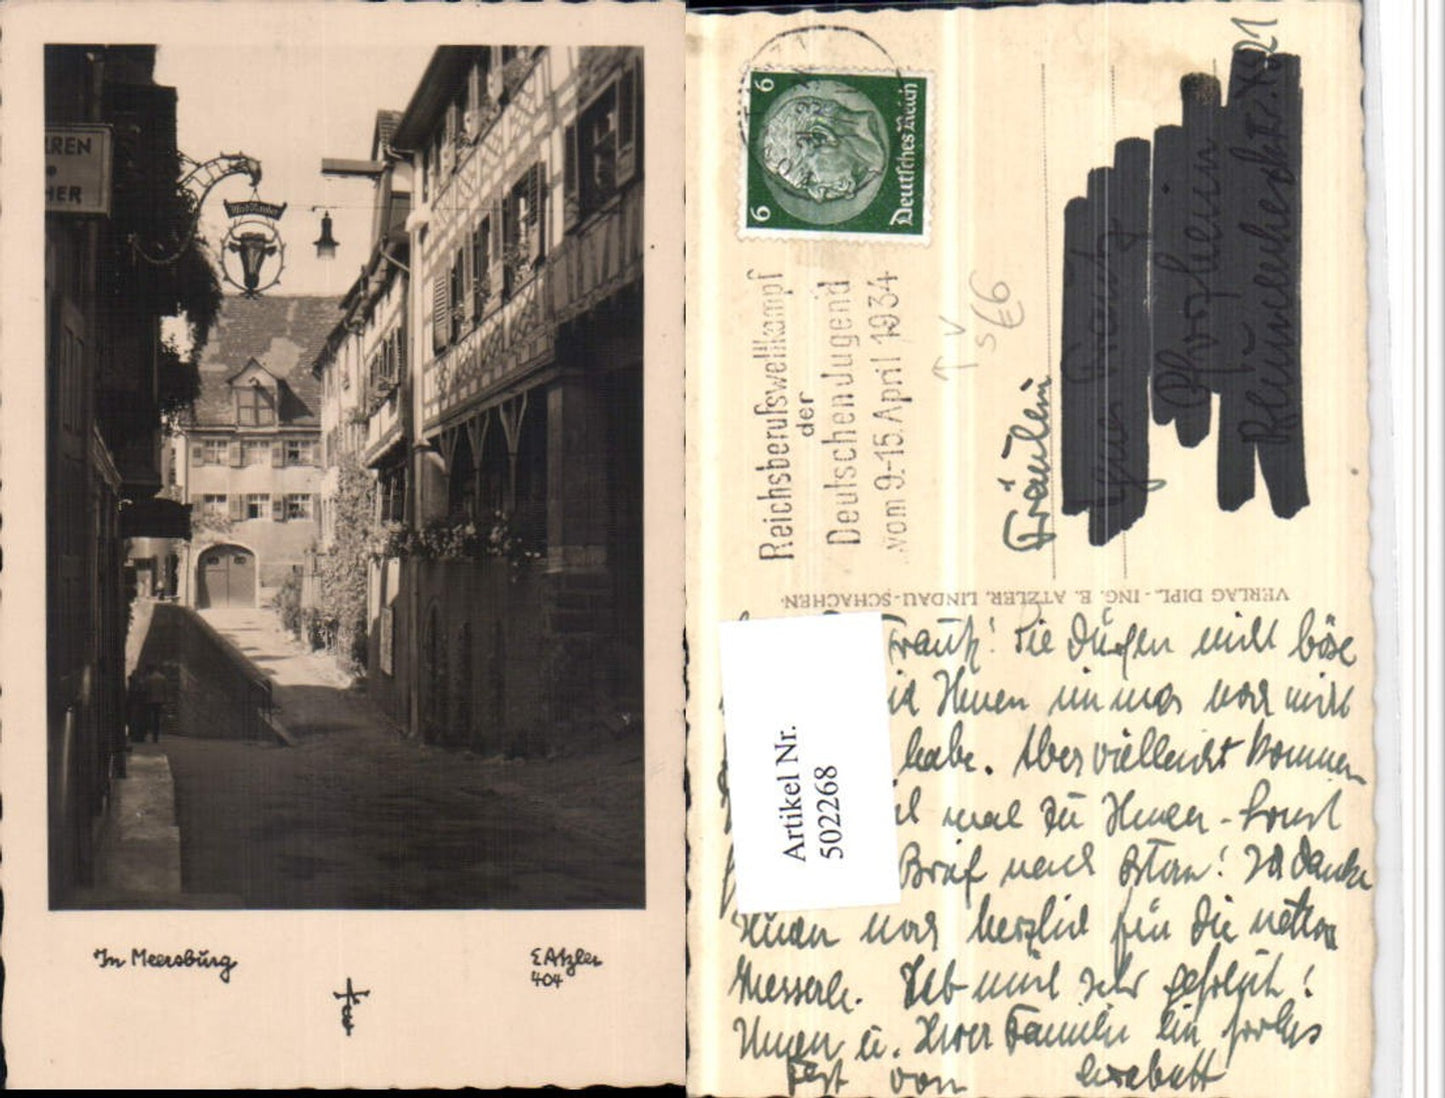 RREN
HER
In Meersburg
E Atzler
404
6
6
Deutsches Reich
Reichsberufswettkampf
der
Deutschen Jugend
vom 9.-15. April 1934
Fräulein
VERLAG DIPL.-ING. E. ATZLER, LINDAU-SCHACHEN
Artikel Nr.
502268
Frautz! Sie dürfen nicht böse
Ihnen immer noch nicht
habe. Aber vielleicht komme
mal zu Ihnen - sonst
Brief nach Ostern! Ich danke
Ihnen noch herzlich für die netten
Hab mich sehr gefreut!
Ihnen u. Ihrer Familie ein frohes
Fest von